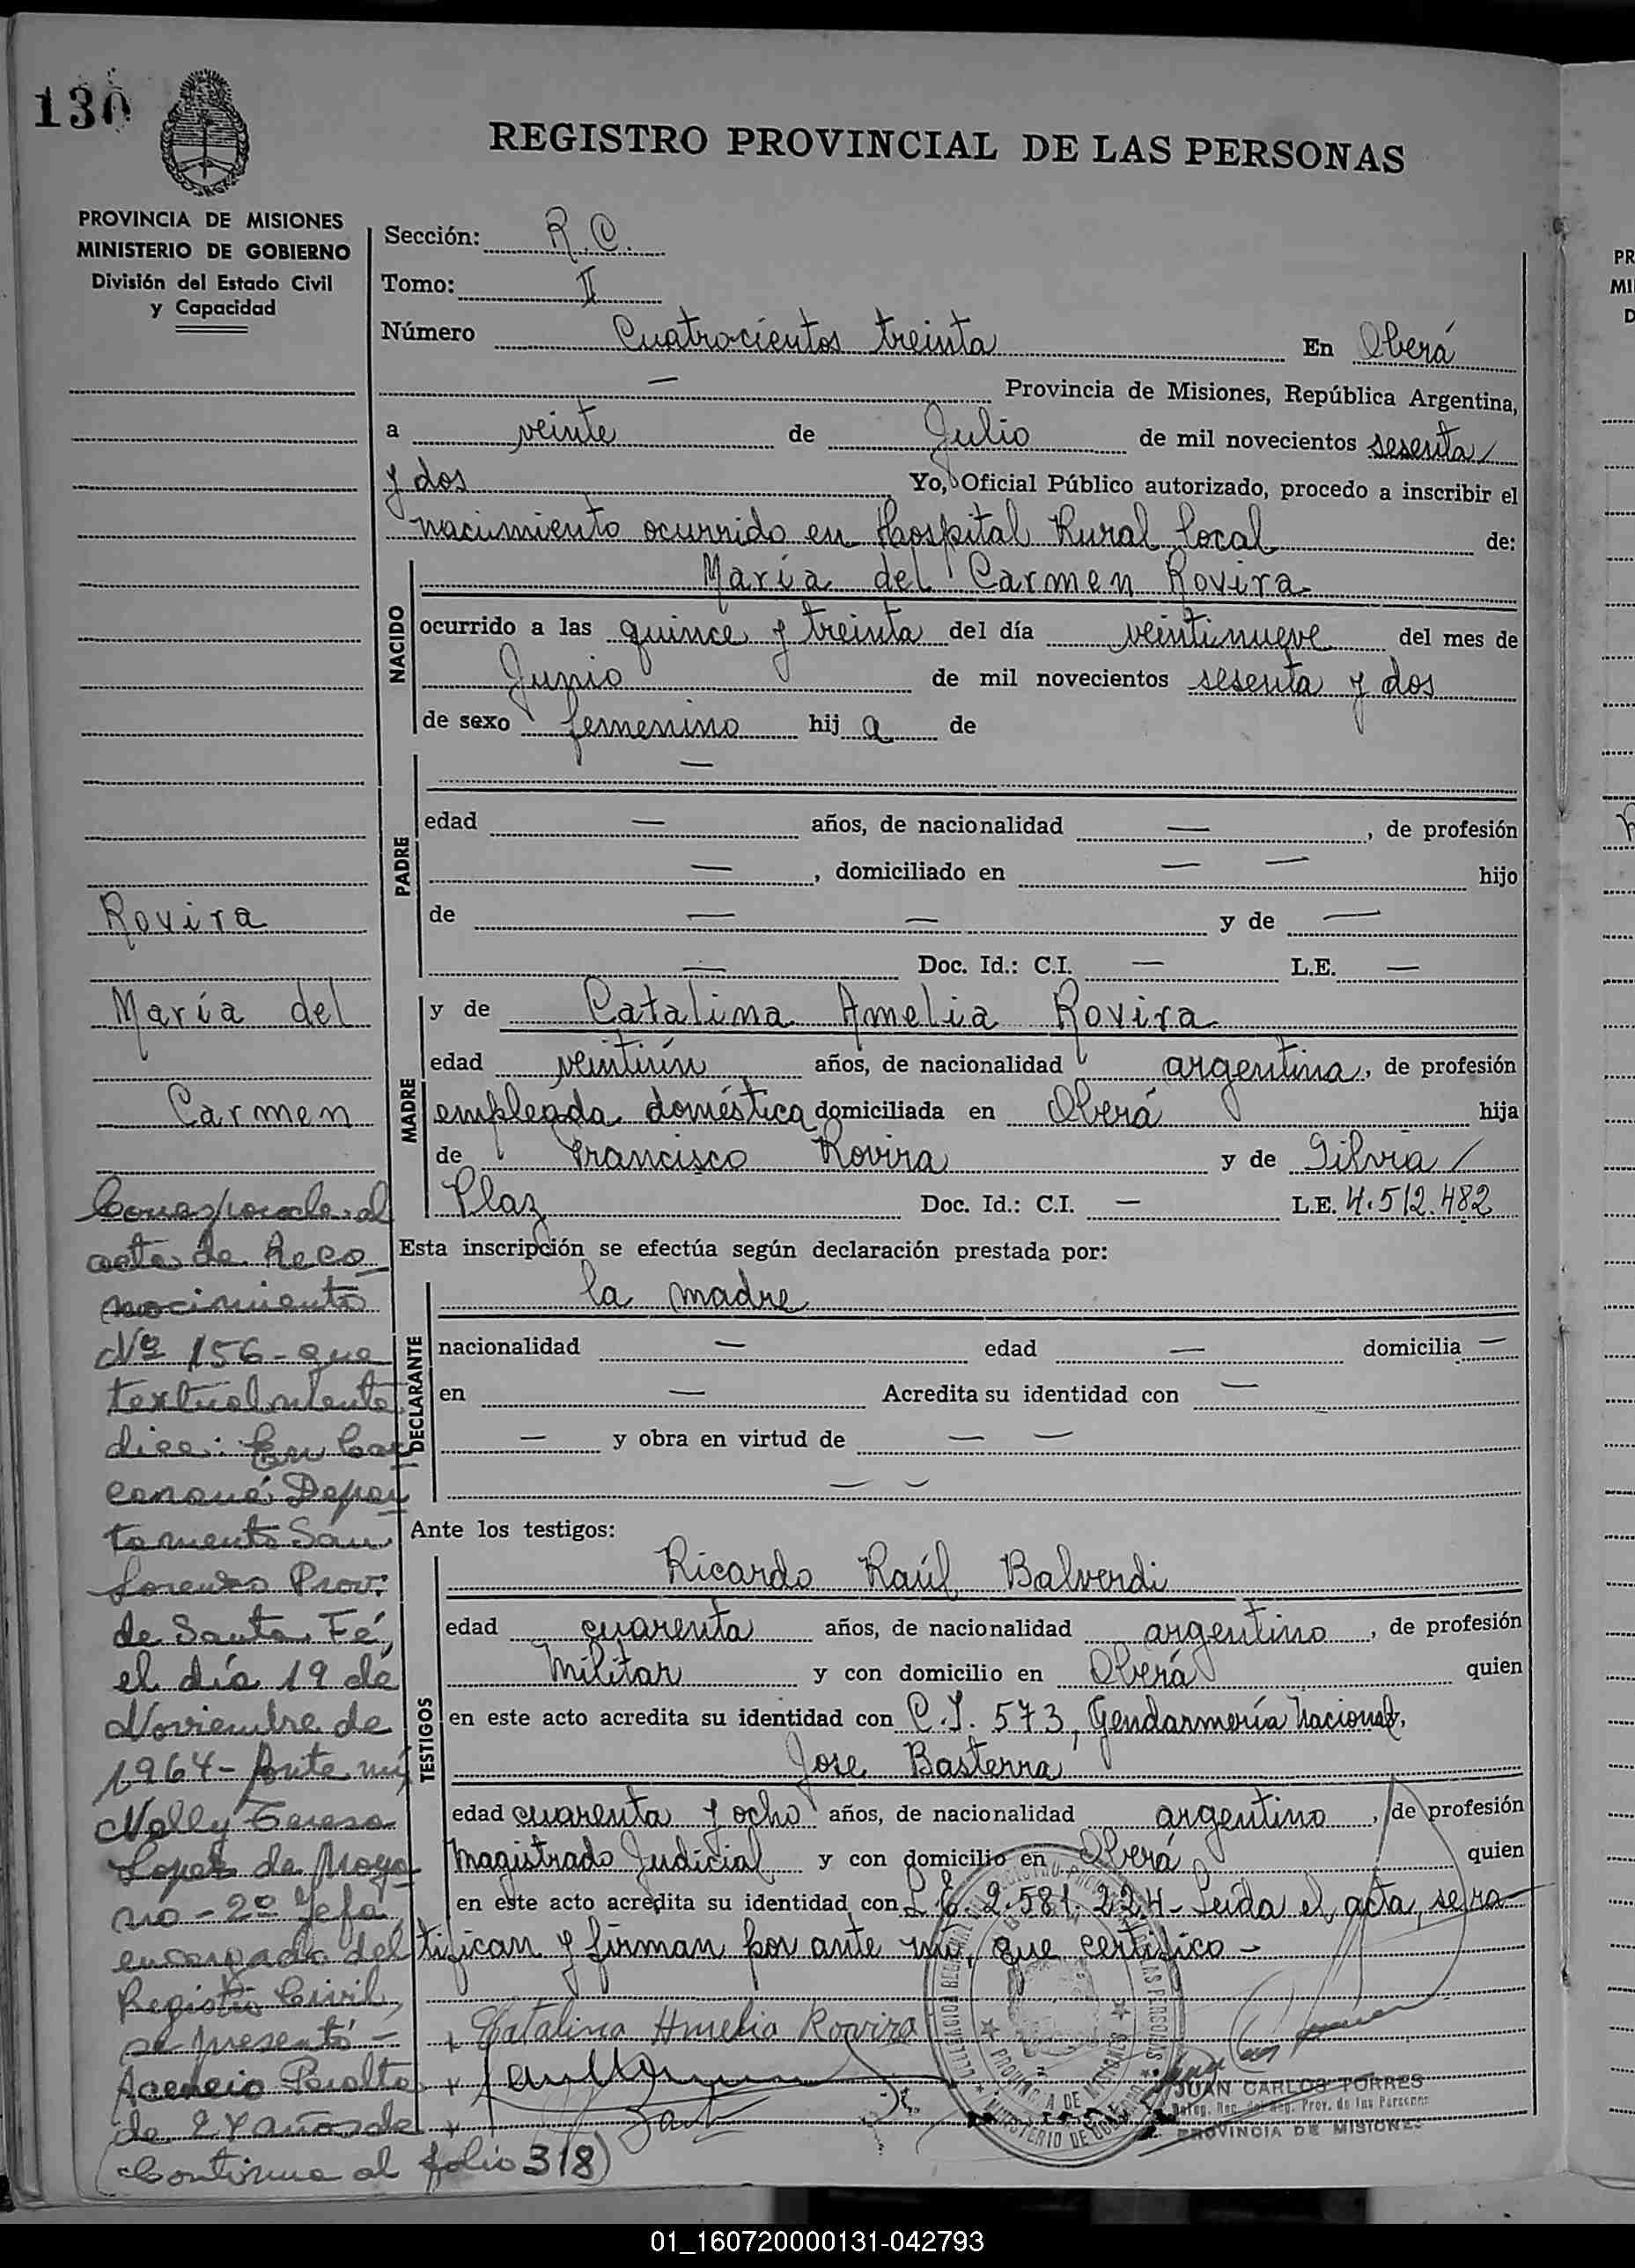 130
REGISTRO PROVINCIAL DE LAS PERSONAS
PROVINCIA DE MISIONES
MINISTERIO DE GOBIERNO
División del Estado Civil
y Capacidad
Sección: R.C.
Tomo: II
Número Cuatrocientos treinta En Oberá
— Provincia de Misiones, República Argentina,
a veinte de Julio de mil novecientos sesenta/
y dos Yo, Oficial Público autorizado, procedo a inscribir el
nacimiento ocurrido en Hospital Rural Local de:
NACIDO
María del Carmen Rovira
ocurrido a las quince y treinta del día veintinueve del mes de
Junio de mil novecientos sesenta y dos
de sexo femenino hij a de
PADRE
—
edad — años, de nacionalidad — , de profesión
— , domiciliado en — — hijo
de — — y de —
— Doc. Id.: C.I. — L.E. —
MADRE
y de Catalina Amelia Rovira
edad veintiún años, de nacionalidad argentina, de profesión
empleada doméstica domiciliada en Oberá hija
de Francisco Rovira y de Silvia /
Plaz Doc. Id.: C.I. — L.E. 4.512.482
Esta inscripción se efectúa según declaración prestada por:
DECLARANTE
la madre
nacionalidad — edad — domicilia —
en — Acredita su identidad con —
— y obra en virtud de — —
— —
Ante los testigos:
TESTIGOS
Ricardo Raúl Balverdi
edad cuarenta años, de nacionalidad argentino, de profesión
Militar y con domicilio en Oberá quien
en este acto acredita su identidad con C.I. 573, Gendarmería Nacional,
Jose Basterra
edad cuarenta y ocho años, de nacionalidad argentino, de profesión
Magistrado Judicial y con domicilio en Oberá quien
en este acto acredita su identidad con L.E. 2.581.224- Leída el acta, se ra-
tifican y firman por ante mí, que certifico -
x Catalina Amelia Rovira
x
x
DELEGACION REGISTRO PROVINCIAL DE LAS PERSONAS
MINISTERIO DE GOBIERNO
PROVINCIA DE MISIONES
JUAN CARLOS TORRES
Deleg. Reg. del Reg. Prov. de las Personas
PROVINCIA DE MISIONES
Rovira
María del
Carmen
Corresponde al
acta de Reco
nocimiento
Nº 156 - que
textualmente
dice: En Car
caraná Depar
tamento San
Lorenzo Prov:
de Santa Fé,
el día 19 de
Noviembre de
1964 - Ante mí,
Nelly Teresa
Lopez de Moya
no - 2º Jefa
encargada del
Registro Civil,
se presentó -
Acencio Peralta
de 24 años de
(Continua al folio 318)
01_160720000131-042793